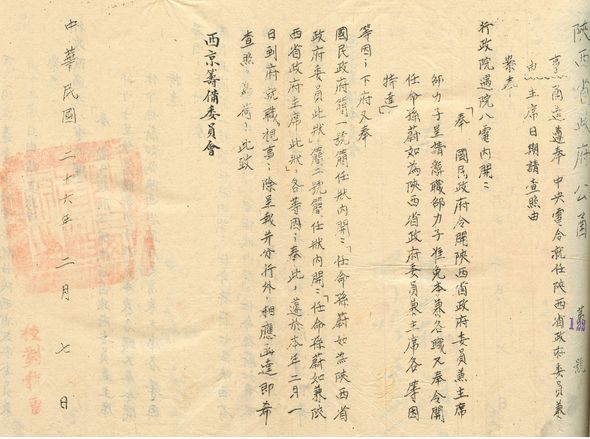 陝西省政府公函 第 號
事由 函達遵奉中央電令就任陝西省政府委員兼
主席日期請查照由
案奉
行政院 院 電內開：
「奉 國民政府令開陝西省政府委員兼主席
邵力子呈請辭職邵力子准免本兼各職又奉令開
任命孫蔚如為陝西省政府委員兼主席各等因
特達」
等因；下府又奉
國民政府簡一號簡任狀內開：「任命孫蔚如為陝西省
政府委員此狀」簡二號簡任狀內開：「任命孫蔚如兼陝
西省政府主席此狀」各等因；奉此，遵於本年二月一
日到府就職視事；除呈報并分行外，相應函達即希
查照為荷！此致
西京籌備委員會
中華民國二十六年二月七日
校對